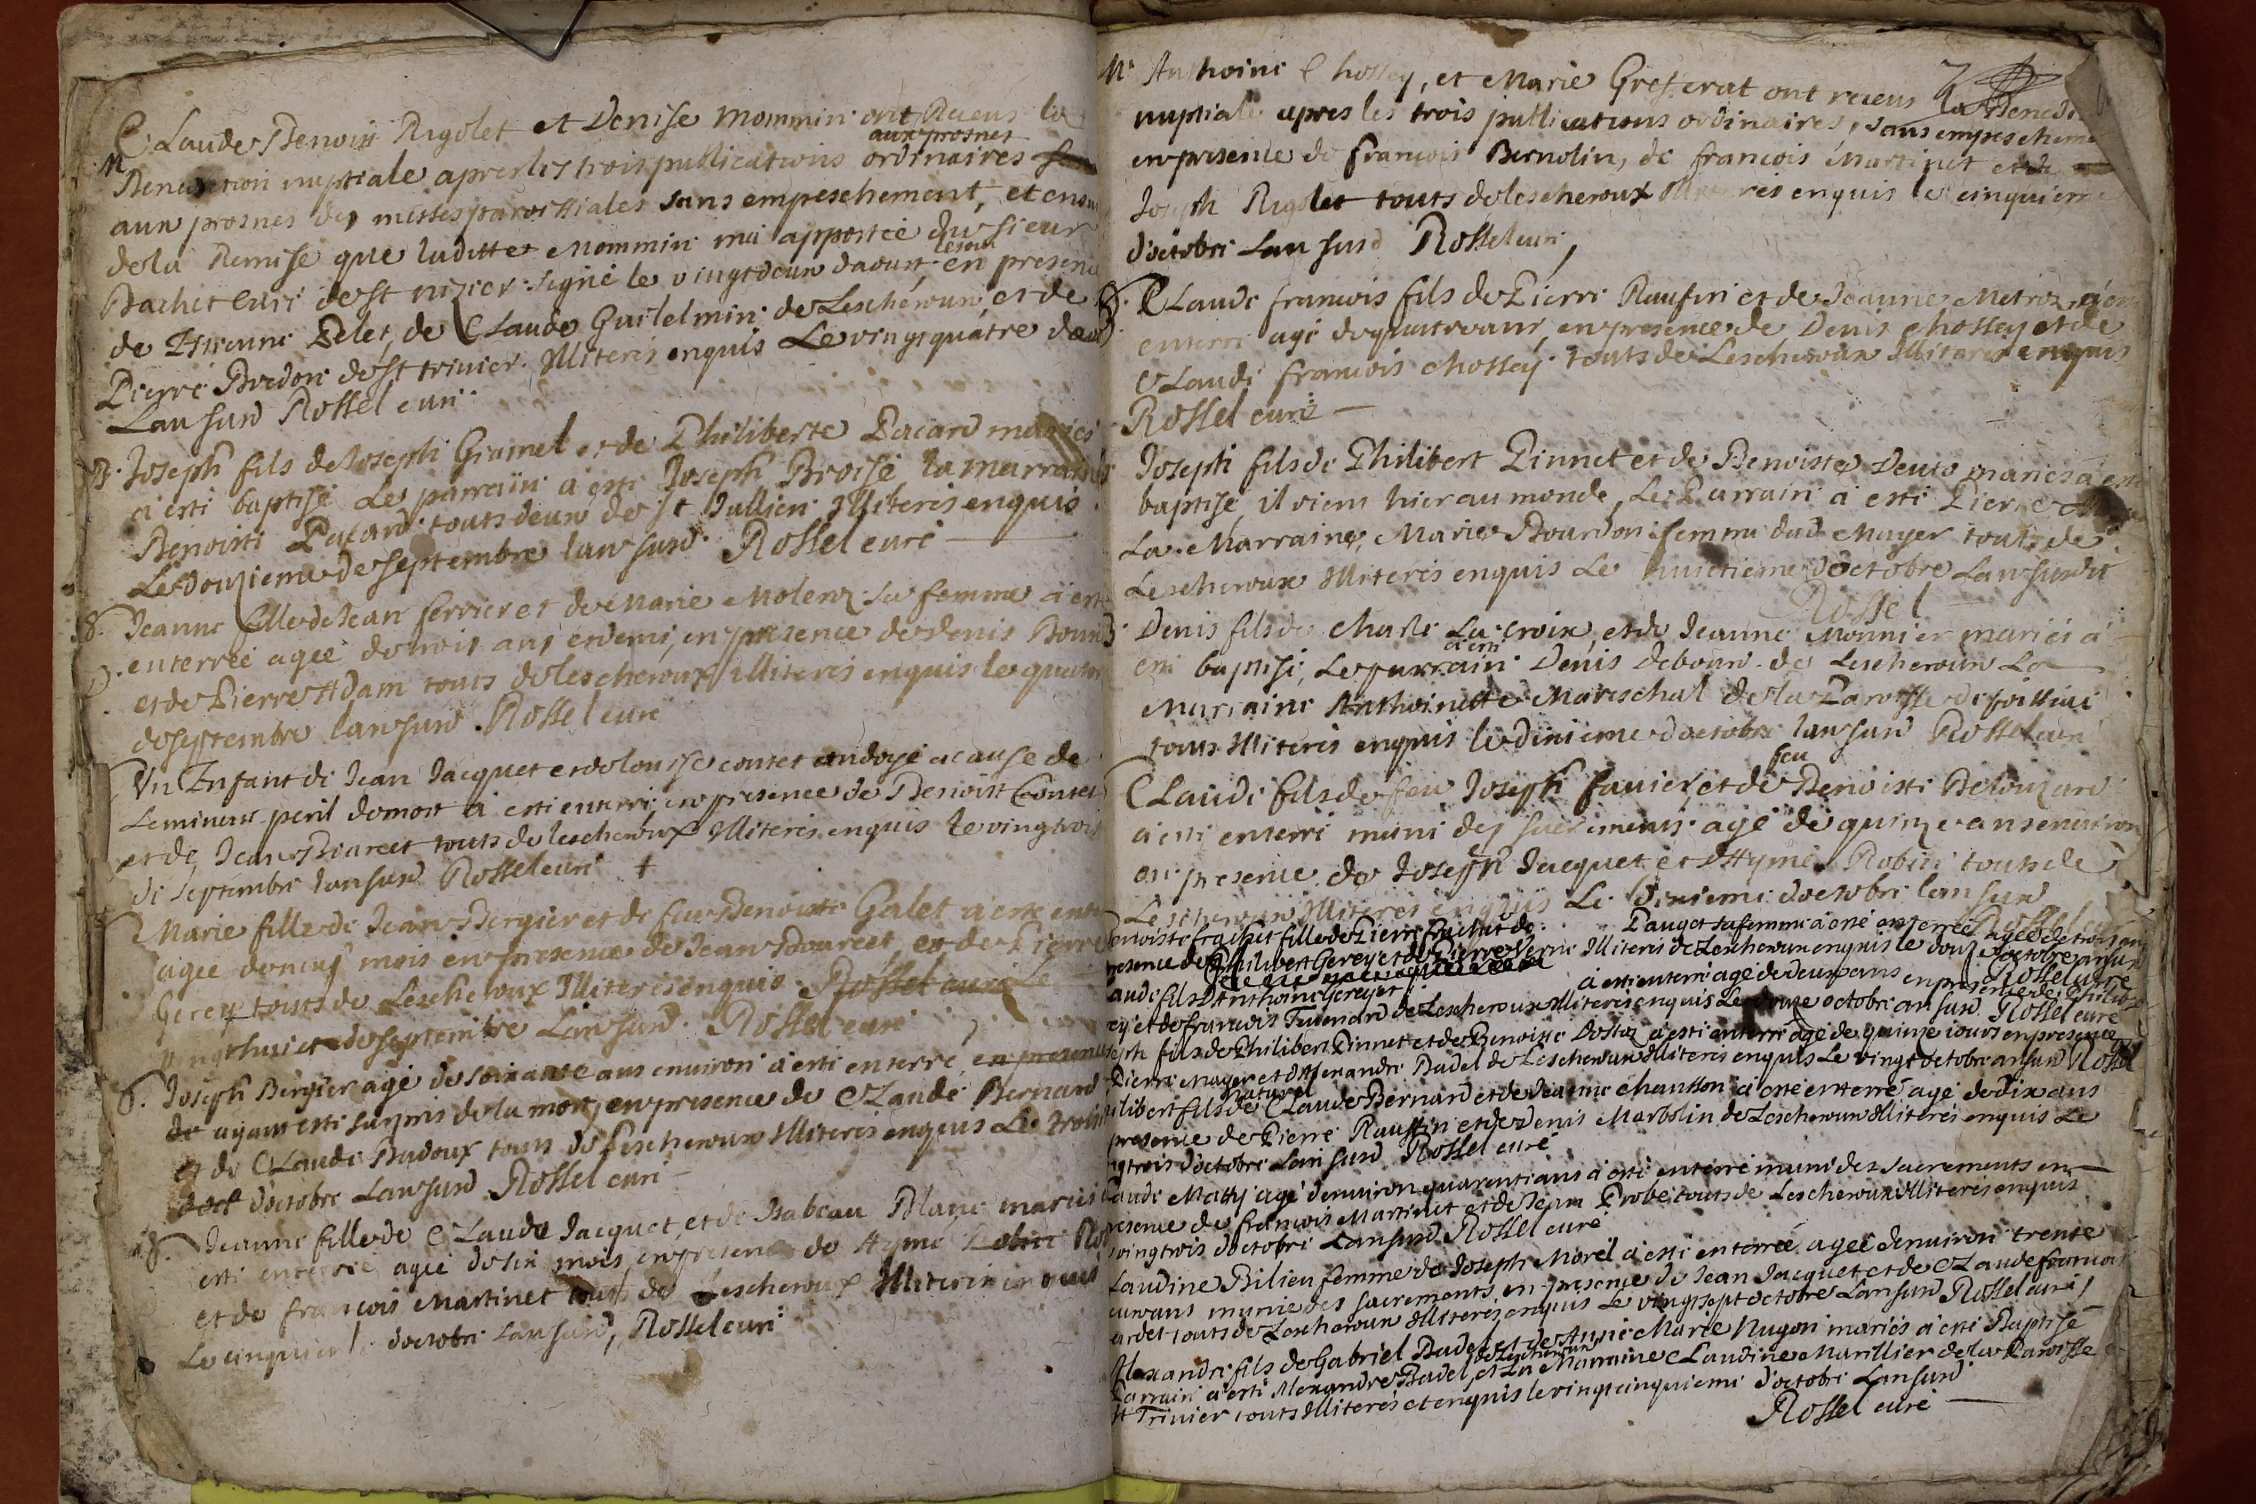 Claude Benoist Rigolet et Denise Mommin ont Receus la
M Benediction nuptiale apres les trois publications ordinaires
aux prosnes
aux prosnes des messes paroissiales sans empeschement, et ensu
de la Remise que laditte Mommin ma apportée du sieur
Bachet Curé de st nizier signé le vingtdeux daoust en presence
de Estienne Pelet, de Claude Guillelmin de Lescheroux et de
Pierre Bredon de st trivier Illiterés enquis Le vingtquatre daoust
Lan susd Rossel curé
B. Joseph fils de Joseph Gramel et de Philiberte Pacard mariés
a esté baptisé Le parrain a esté Joseph Broisé la marraine
Benoiste Pacard touts deux de st Jullien Illiterés enquis
Le douzieme de septembre lan susd Rossel curé
S. Jeanne fille de Jean ferrier et de Marie Molenz sa femme a esté
enterrée agée de trois ans et demi, en presence de Denis
et de Pierre Adam touts de lescheroux illiterés enquis le
de septembre lan susd Rossel curé
Un Enfant de Jean Jacquet et de Louise contet ondoyé a cause de
Leminent peril de mort a esté enterré en presence de Benoist Contet
et de Jean Bourcet touts de lescheroux Illiterés enquis le vingtrois
de septembre lan susd Rossel curé +
Marie fille de Jean Bergier et de feu Benoiste Galet a esté
agée de neuf mois en presence de Jean Bourcet, et de Pierre
Gerey touts de Lescheroux Illiterés enquis Rossel curé Le
vingthuict de septembre Lan susd Rossel curé
S. Joseph Bergier agé de soixante ans environ a esté enterré, en presence
de ayant esté surpris de la mort, en presence de Claude Bernard
et de Claude Budoux touts de Lescheroux Illiterés enquis Le
doct doctobre Lan susd Rossel curé
S. Jeanne fille de Claude Jacquet, et de Isabeau Blanc mariés
esté enterrée agée de six mois, en presence de Aymé
et de francois Martinet touts de Lescheroux Illiterés enquis
Le cinquieme doctobre Lan susd, Rossel curé
Mr Anthoine Chossey, et Marie Greserat ont receus la Benedi
nuptiale apres les trois publications ordinaires, sans empescheme
en presence de francois Bernolin, de francois Martinet et de
Joseph Rigolet touts de lescheroux Illiterés enquis le cinquieme
doctobre Lan susd Rossel curé,
S. Claude francois fils de Pierre Raufin et de Jeanne Metroz a
enterré agé de quatre ans, en presence de Denis Chossey et de
Claude francois chossey touts de Lescheroux Illiterés enquis
Rossel curé
Joseph fils de Philibert Pinnet et de Benoiste mariés a esté
baptisé il vient hier au monde, Le Parrain a esté Pierre
La Marraine, Marie Bourdon femme dud Mayer touts de
Lescheroux Illiterés enquis Le huictieme doctobre Lan susdit
Rossel
Denis fils de Charle La croix, et de Jeanne Monnier mariés a
esté baptisé, Le parrain a esté Denis Deboux de Lescheroux La
Marraine Anthoinette Mareschal de la Paroisse de foissiat
touts Illiterés enquis le dixieme doctobre lan susd Rossel curé
Claude fils de feu Joseph favier, et de feu Benoiste Belouzard
a esté enterré muni des sacrements agé de quinze ans environ
en presence de Joseph Jacquet et dAymé Robin touts de
Lescheroux Illiterés enquis Le dixieme doctobre lan susd
Benoiste frachet fille de Pierre frachet de Pauget sa femme a esté enterrée agée de trois ans
presence de Philibert Gerey et de Pierre Verne Illiterés de Lescheroux enquis le douze doctobre an susd
Rossel curé
Claude fils DAnthoine Gereyet a esté enterré agé de deux ans en presence de
et de francois Tenend de Lescheroux Illiterés enquis Le octobre an susd Rossel curé
Joseph fils de Philibert Pinnet et de Benoiste Dostoz a esté enterré agé de quinze iours en presence
Pierre Mayer et dAlexandre Badel de Lescheroux Illiterés enquis Le vingt octobre an susd Rossel
Philibert fils naturel de Claude Bernard et de Jeanne Chanson a esté enterré agé de dix ans
presence de Pierre Raufin et de Denis Marbolin de Lescheroux Illiterés enquis Le
vingtrois doctobre Lan susd Rossel curé
Claude Matthy agé denviron quarente ans a esté enterré muni des sacrements en
presence de francois Martinet et de Jean Probe touts de Lescheroux Illiterés enquis
vingtrois doctobre Lan susd Rossel curé
Claudine Bilieu femme de Joseph Morel a esté enterrée agée denviron trente
ans munie des sacrements en presence de Jean Jacquet et de Claude francois
touts de Lescheroux Illiterés enquis Le vingtsept octobre Lan susd Rossel curé
Alexandre fils de Gabriel Badel et de Anne Marie Nugon mariés a esté Baptisé
Parrain a esté Alexandre Badel de Lescheroux, et La Marraine Claudine Marillier de la Paroisse
St Trivier touts Illiterés et enquis le vingtcinquieme doctobre Lan susd
Rossel curé